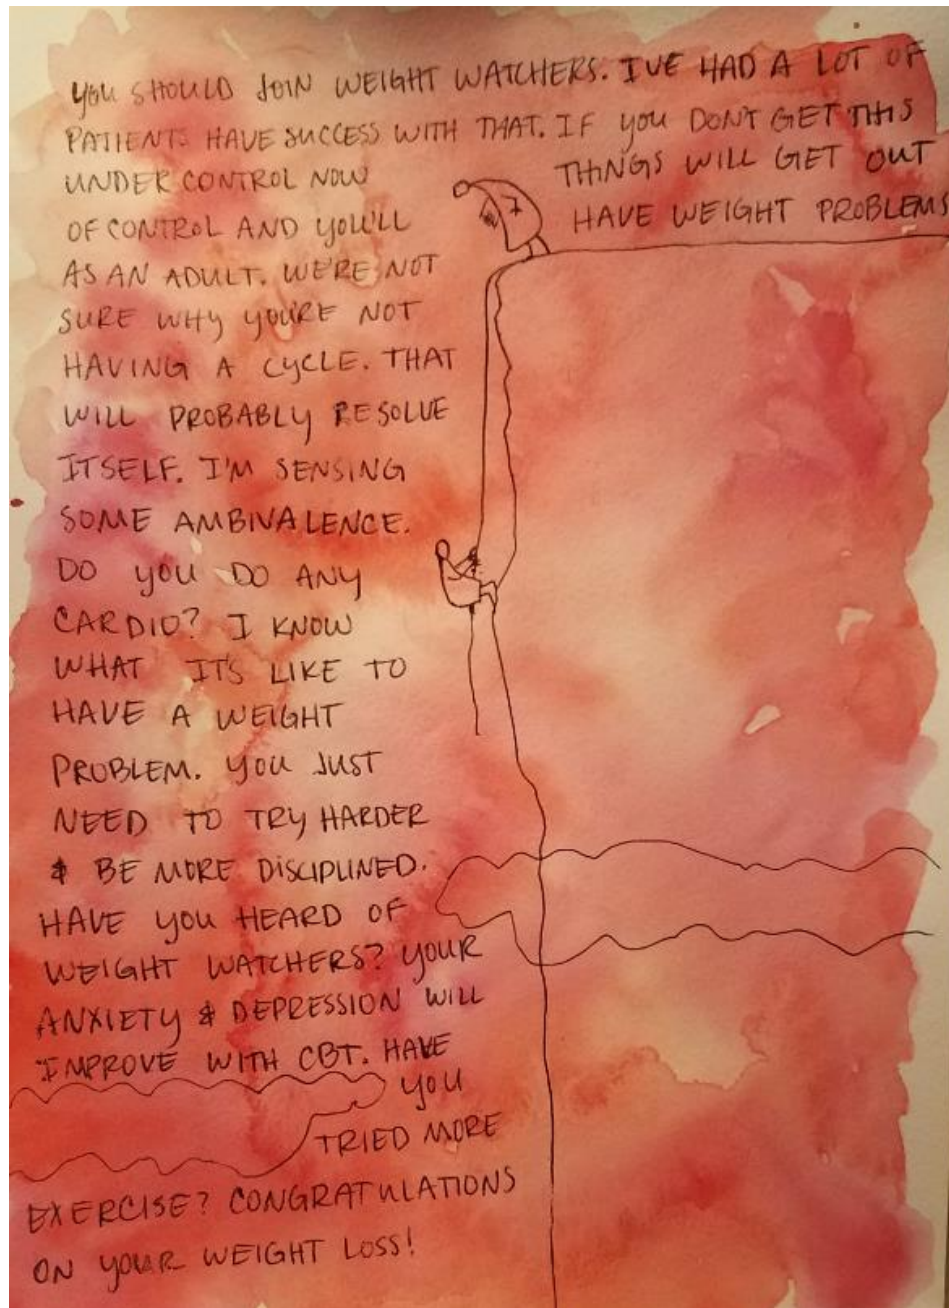 YOU SHOULD JOIN WEIGHT WATCHERS. IVE HAD A LOT OF
PATIENTS HAVE SUCCESS WITH THAT. IF YOU DON'T GET THIS
UNDER CONTROL NOW THINGS WILL GET OUT
OF CONTROL AND YOU'LL HAVE WEIGHT PROBLEMS
AS AN ADULT. WE'RE NOT
SURE WHY YOU'RE NOT
HAVING A CYCLE. THAT
WILL PROBABLY RESOLVE
ITSELF. I'M SENSING
SOME AMBIVALENCE.
DO YOU DO ANY
CARDIO? I KNOW
WHAT IT'S LIKE TO
HAVE A WEIGHT
PROBLEM. YOU JUST
NEED TO TRY HARDER
& BE MORE DISCIPLINED.
HAVE YOU HEARD OF
WEIGHT WATCHERS? YOUR
ANXIETY & DEPRESSION WILL
IMPROVE WITH CBT. HAVE
YOU
TRIED MORE
EXERCISE? CONGRATULATIONS
ON YOUR WEIGHT LOSS!